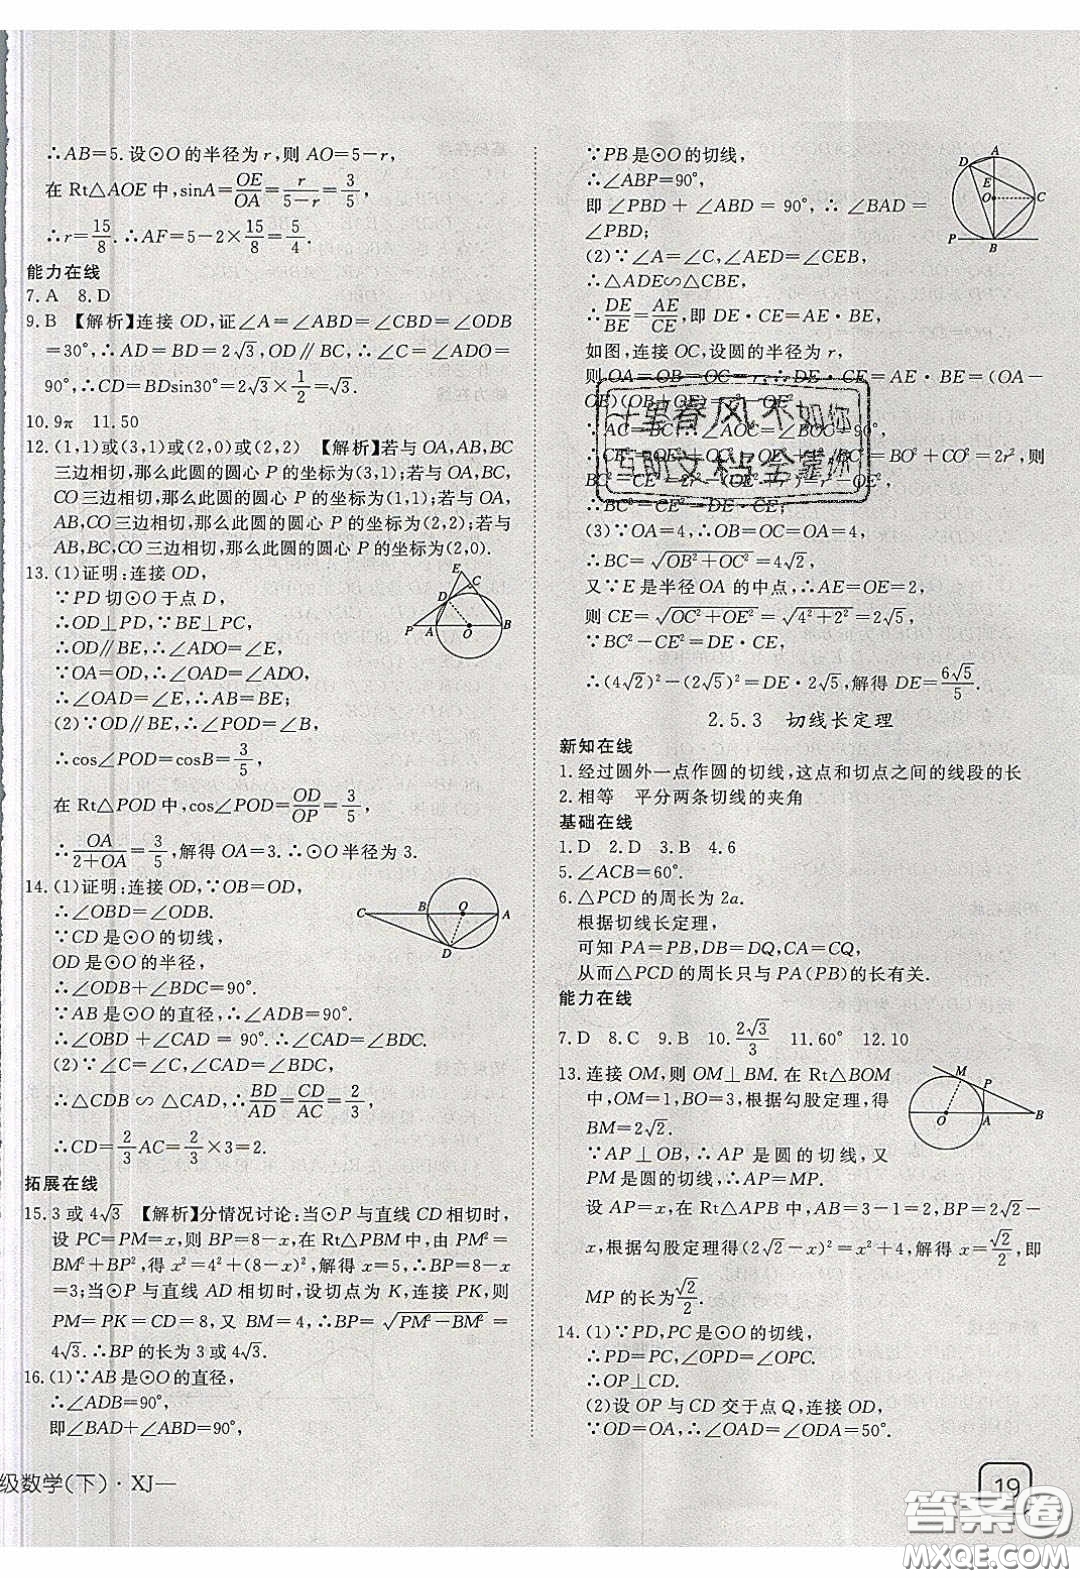 ∴AB=5. 设⊙O的半径为r,则AO=5-r,
在Rt△AOE中,sinA=OE/OA=r/(5-r)=3/5,
∴r=15/8. ∴AF=5-2×15/8=5/4.
能力在线
7. A 8. D
9. B 【解析】连接OD,证∠A=∠ABD=∠CBD=∠ODB
=30°,∴AD=BD=2√3,OD∥BC,∴∠C=∠ADO=
90°,∴CD=BDsin30°=2√3×1/2=√3.
10. 9π 11. 50
12. (1,1)或(3,1)或(2,0)或(2,2) 【解析】若与OA,AB,BC
三边相切,那么此圆的圆心P的坐标为(3,1);若与AO,
CO三边相切,那么此圆的圆心P的坐标为(1,1);若与OA,
AB,CO三边相切,那么此圆的圆心P的坐标为(2,2);若与
AB,BC,CO三边相切,那么此圆的圆心P的坐标为(2,0).
13. (1)证明:连接OD,
∵PD切⊙O于点D,
∴OD⊥PD,∵BE⊥PC,
∴OD∥BE,∴∠ADO=∠E,
∵OA=OD,∴∠OAD=∠ADO,
∴∠OAD=∠E,∴AB=BE;
(2)∵OD∥BE,∴∠POD=∠B,
∴cos∠POD=cosB=3/5,
在Rt△POD中,cos∠POD=OD/OP=3/5,
∴OA/(2+OA)=3/5,解得OA=3. ∴⊙O半径为3.
14. (1)证明:连接OD,∵OB=OD,
∴∠OBD=∠ODB.
∵CD是⊙O的切线,
OD是⊙O的半径,
∴∠ODB+∠BDC=90°.
∵AB是⊙O的直径,∴∠ADB=90°.
∴∠OBD+∠CAD=90°. ∴∠CAD=∠BDC.
(2)∵∠C=∠C,∠CAD=∠BDC,
∴△CDB∽△CAD. ∴BD/AD=CD/AC=2/3,
∴CD=2/3AC=2/3×3=2.
拓展在线
15. 3或4√3 【解析】分情况讨论:当⊙P与直线CD相切时,
设PC=PM=x,则BP=8-x,在Rt△PBM中,由PM²=
BM²+BP²,得x²=4²+(8-x)²,解得x=5,∴BP=8-5
=3;当⊙P与直线AD相切时,设切点为K,连接PK,则
PM=PK=CD=8,又BM=4,∴BP=√(PM²-BM²)=
4√3. ∴BP的长为3或4√3.
16. (1)∵AB是⊙O的直径,
∴∠ADB=90°,
即∠BAD+∠ABD=90°,
级数学(下)·XJ—
∵PB是⊙O的切线,
∴∠ABP=90°,
即∠PBD+∠ABD=90°,∴∠BAD=
∠PBD;
(2)∵∠A=∠C,∠AED=∠CEB,
∴△ADE∽△CBE.
∴DE/BE=AE/CE,即DE·CE=AE·BE,
如图,连接OC,设圆的半径为r,
则OA=OB=OC=r,∴DE·CE=AE·BE=(OA-
OE)(OB+OE)=r²-OE²,
∵AC=BC,∴∠AOC=∠BOC=90°,
∴CE²=OE²+OC²=OE²+r²,BC²=BO²+CO²=2r²,则
BC²-CE²=2r²-(OE²+r²)=r²-OE²,
∴BC²-CE²=DE·CE;
(3)∵OA=4,∴OB=OC=OA=4,
∴BC=√(OB²+OC²)=4√2,
又∵E是半径OA的中点,∴AE=OE=2,
则CE=√(OC²+OE²)=√(4²+2²)=2√5,
∵BC²-CE²=DE·CE,
∴(4√2)²-(2√5)²=DE·2√5,解得DE=6√5/5.
2.5.3 切线长定理
新知在线
1. 经过圆外一点作圆的切线,这点和切点之间的线段的长
2. 相等 平分两条切线的夹角
基础在线
1. D 2. D 3. B 4. 6
5. ∠ACB=60°.
6. △PCD的周长为2a.
根据切线长定理,
可知PA=PB,DB=DQ,CA=CQ,
从而△PCD的周长只与PA(PB)的长有关.
能力在线
7. D 8. C 9. B 10. 2√3/3 11. 60° 12. 10
13. 连接OM,则OM⊥BM. 在Rt△BOM
中,OM=1,BO=3,根据勾股定理,得
BM=2√2.
∵AP⊥OB,∴AP是圆的切线,又
PM是圆的切线,∴AP=MP.
设AP=x,在Rt△APB中,AB=3-1=2,BP=2√2-
x,根据勾股定理得(2√2-x)²=x²+4,解得x=√2/2,即
MP的长为√2/2.
14. (1)∵PD,PC是⊙O的切线,
∴PD=PC,∠OPD=∠OPC.
∴OP⊥CD.
(2)设OP与CD交于点Q,连接OD,
∵OD=OA,∴∠ODA=∠OAD=50°.
19
十里春风不如你
互助文档全靠你
答案圈
MXQE.COM